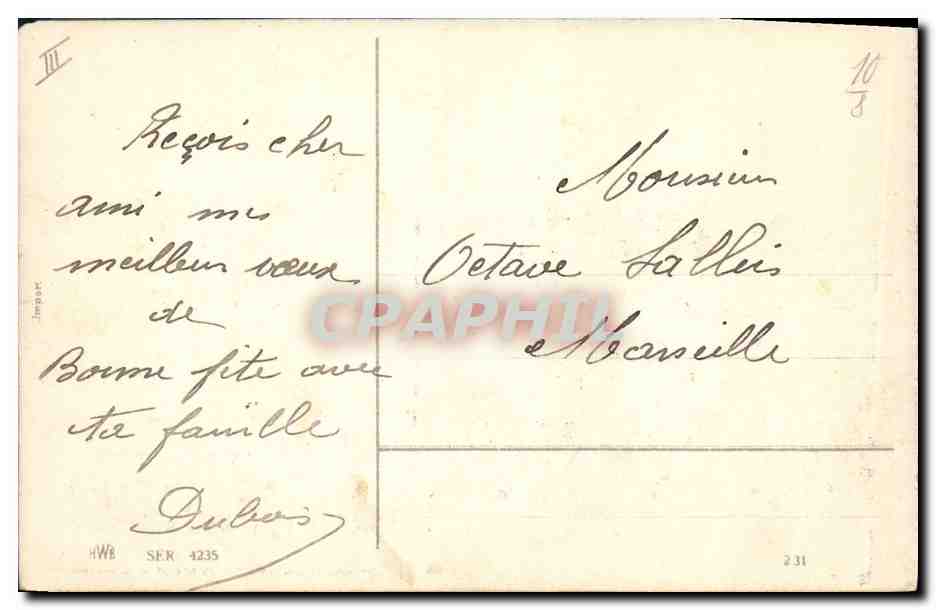 III
Reçois cher
ami mes
meilleurs vœux
de
Bonne fête avec
ta famille
Dubois
HWB SER 4235
Import
10
8
Monsieur
Octave
Marseille
231
CPAPHIL